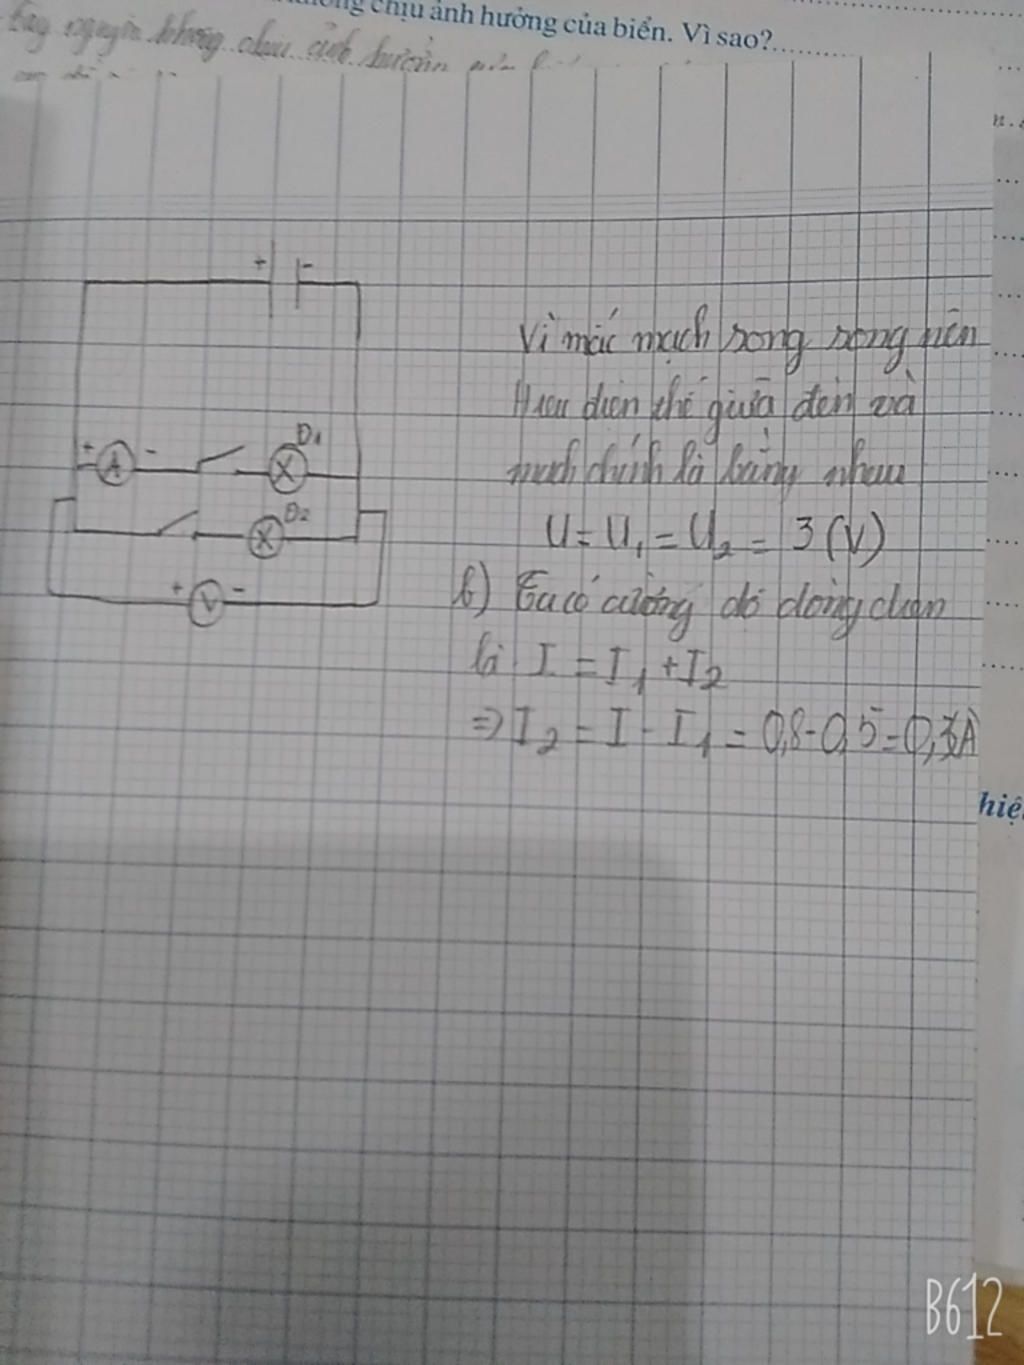 chịu ảnh hưởng của biển. Vì sao?
Tây nguyên không chịu ảnh hưởng
+ -
Vì mắc mạch song song nên
Hiệu điện thế giữa đèn và
mạch chính là bằng nhau
U = U₁ = U₂ = 3 (V)
+ A - Đ1
X
Đ2
X
+ V -
b) Ta có cường độ dòng điện
là I = I₁ + I₂
=> I₂ = I - I₁ = 0,8 - 0,5 = 0,3A
hiệ
B612